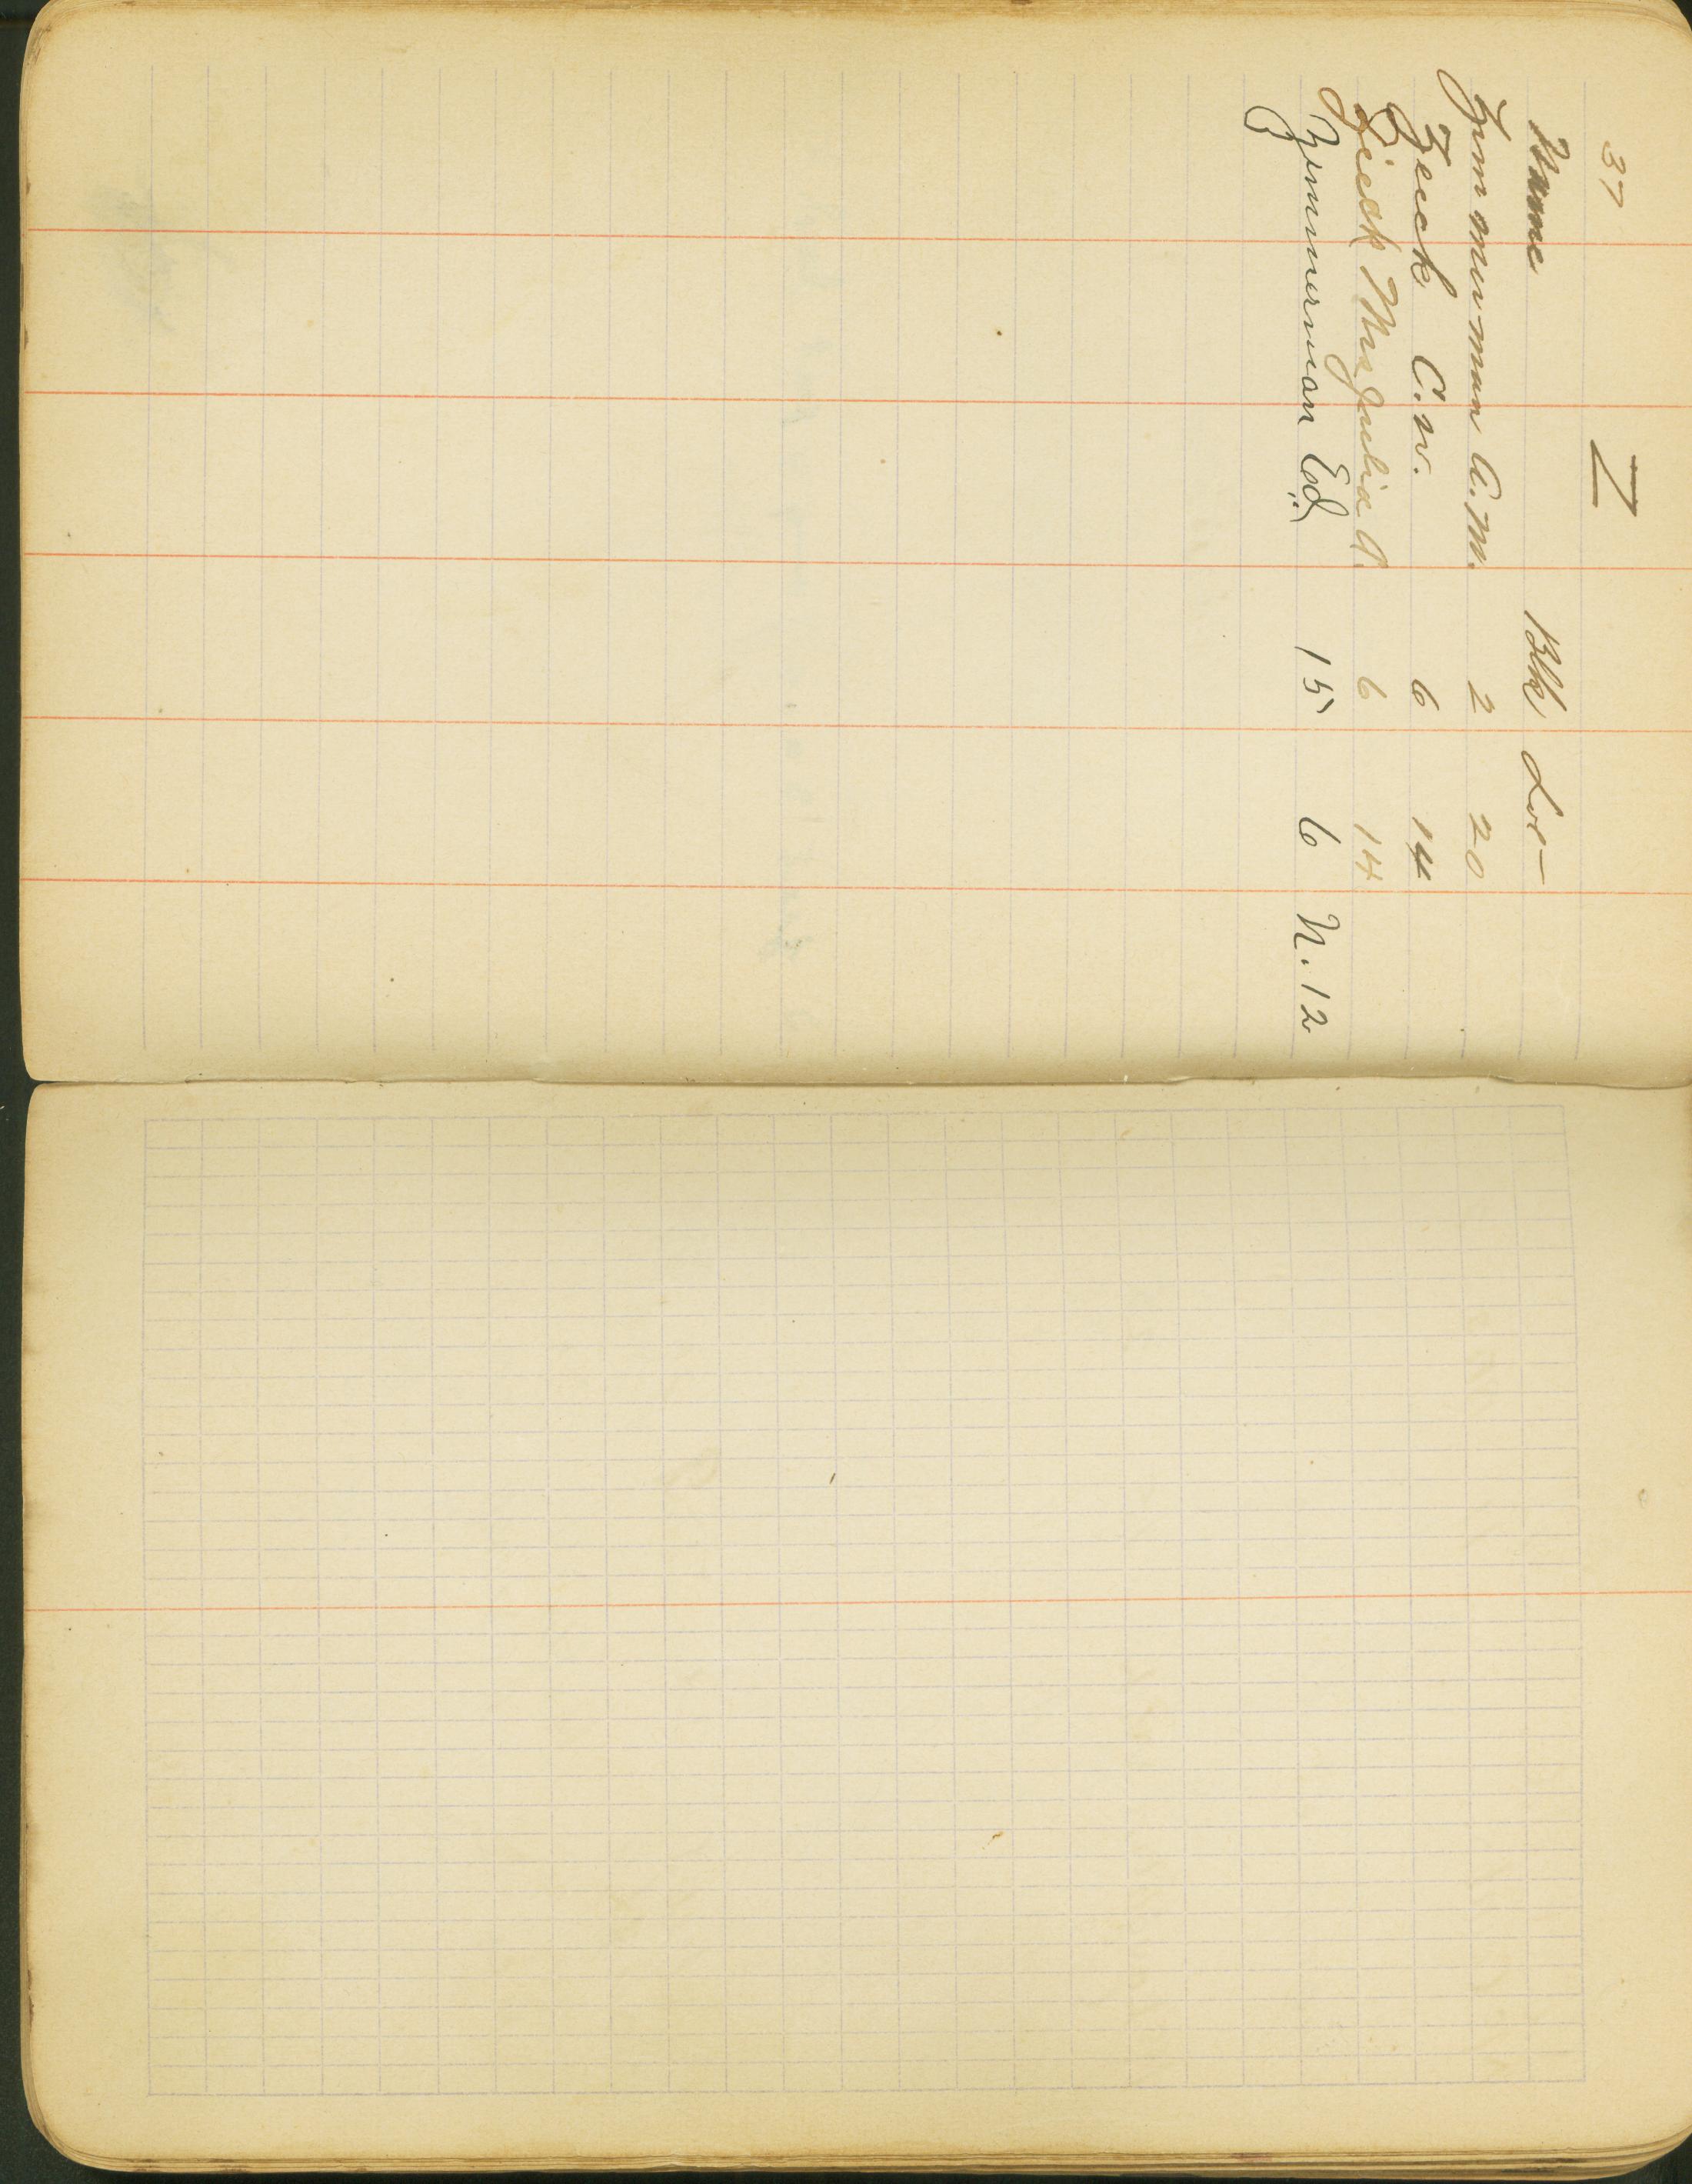 37
Z
Name Blk Lot
Zimmerman A. M. 2 20
Zeeck C. W. 6 14
Zieck Mrs Julia A. 6 14
Zimmerman Ed. 15 6 N. 12